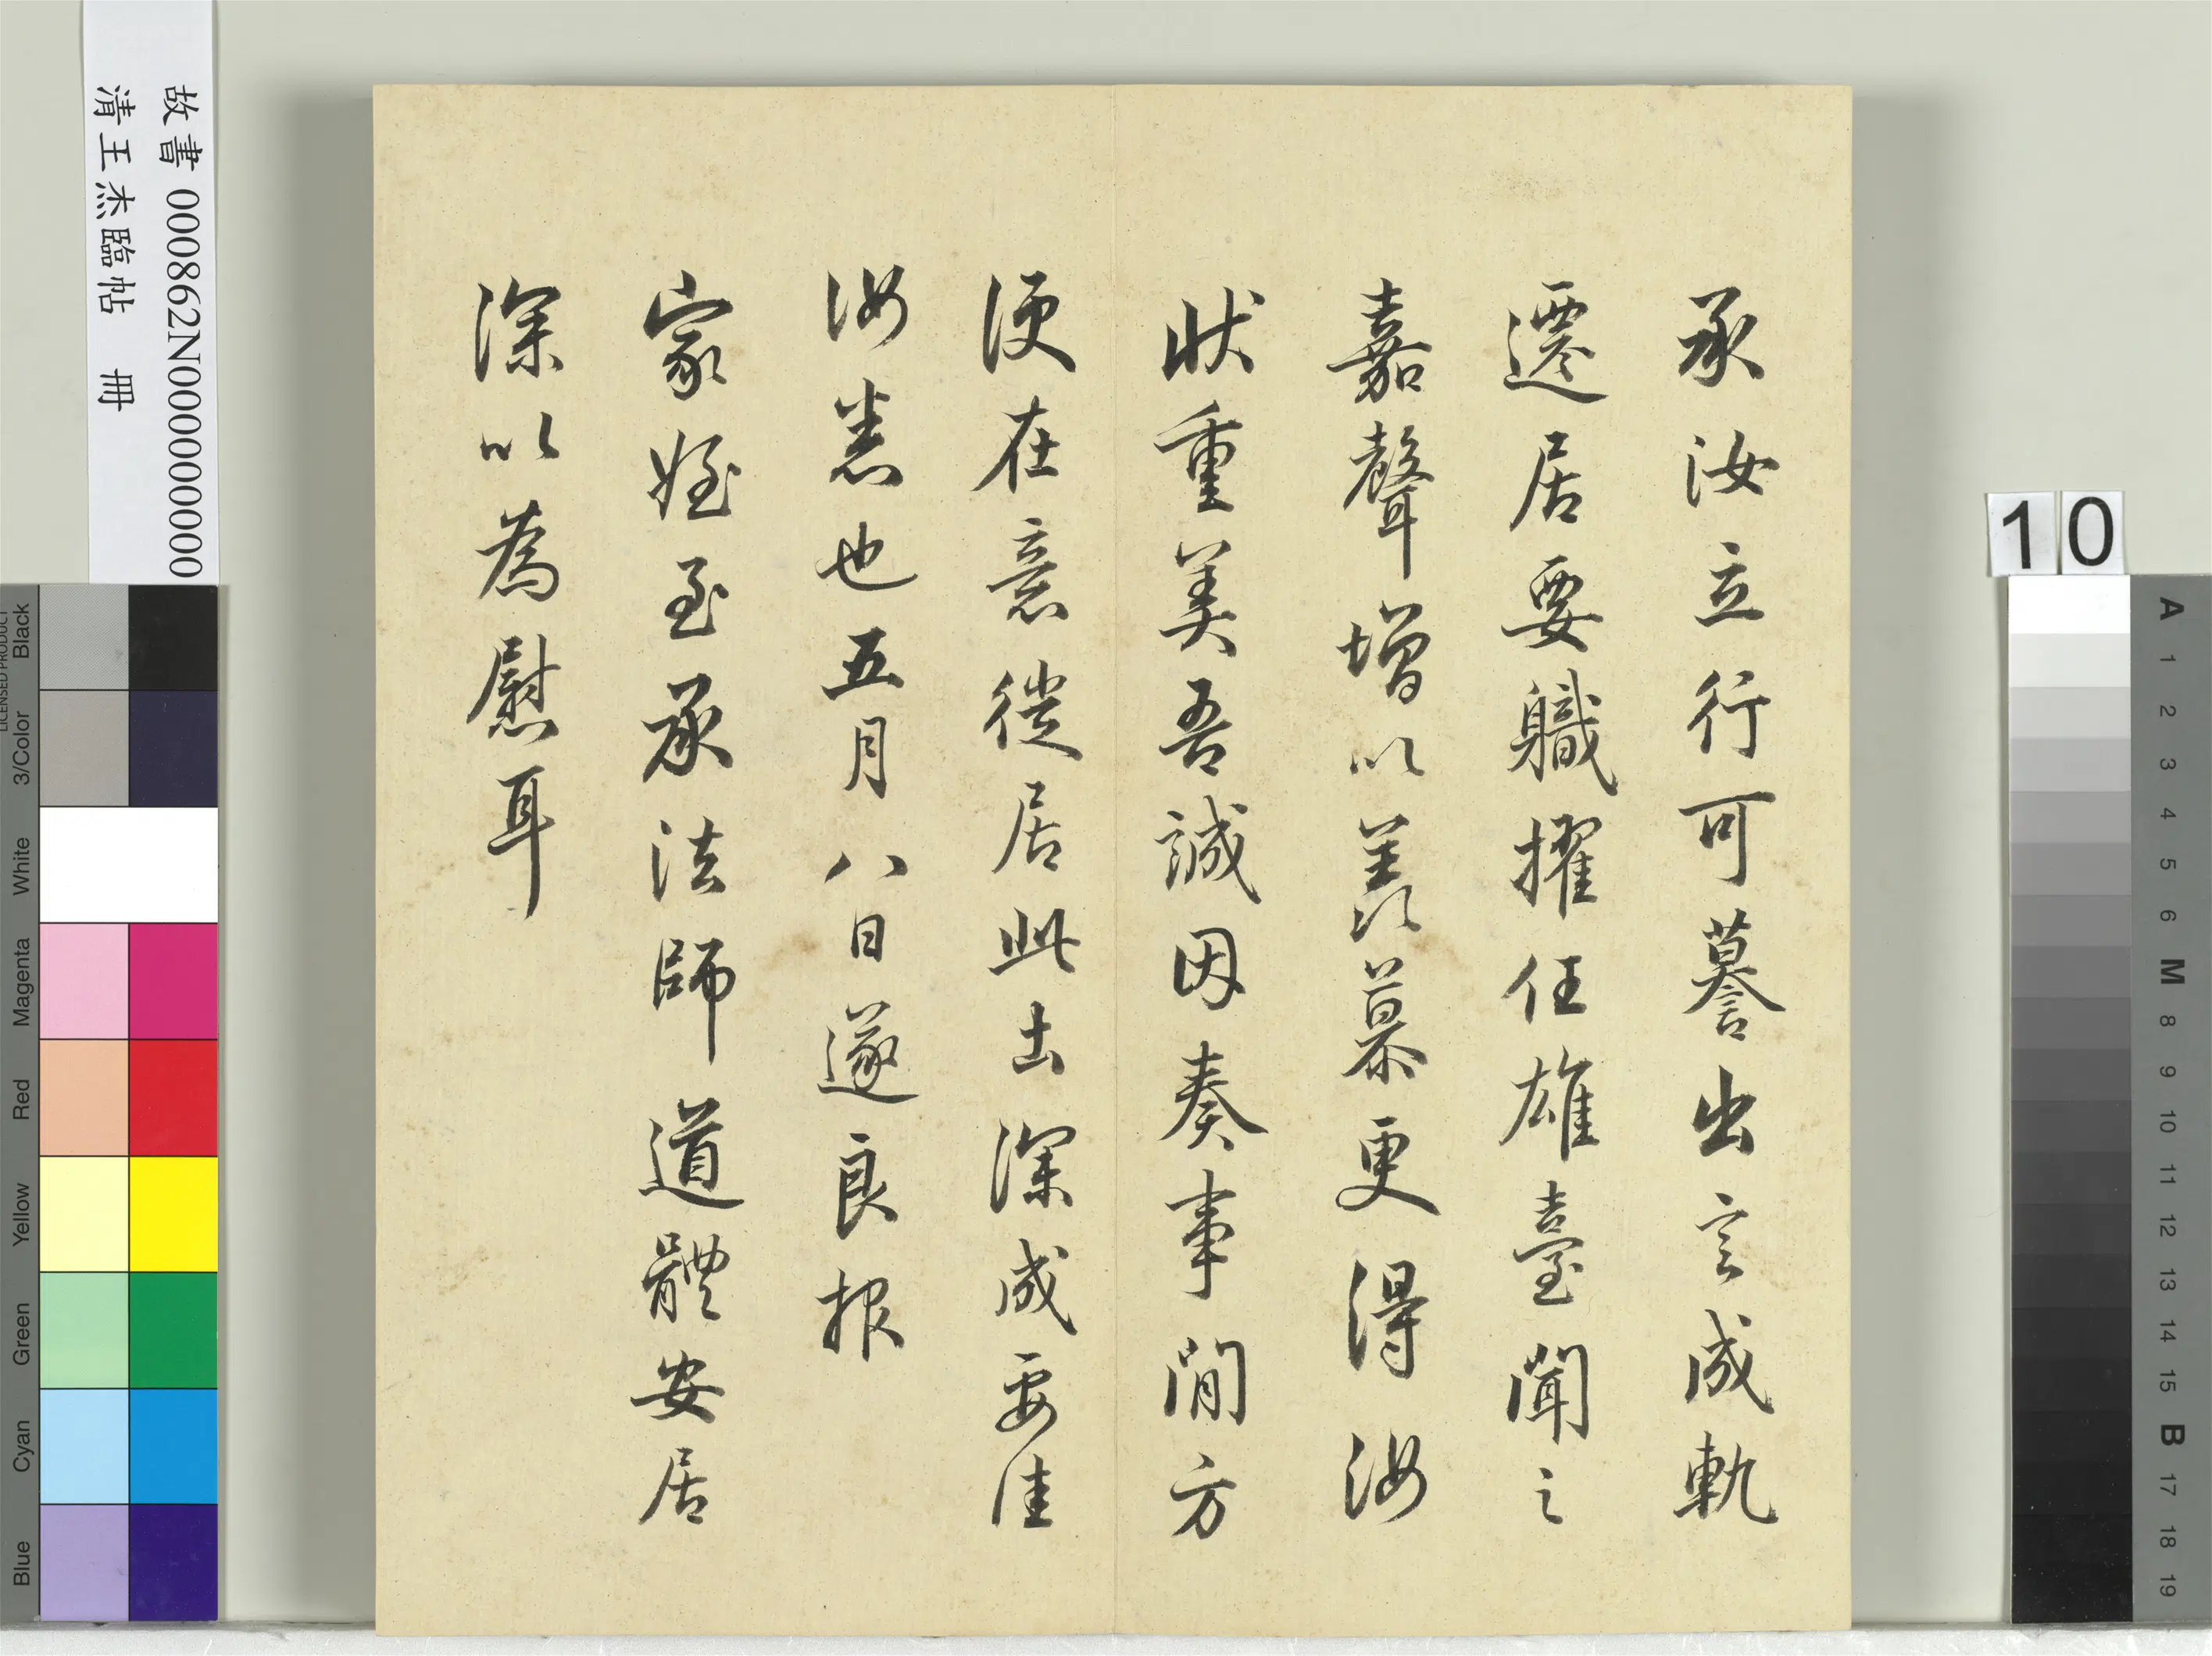 承汝立行可謩出言成軌
遷居要軄擢任雄臺聞之
嘉聲增以羨慕更得汝
狀重美吾誠因奏事間方
便在意徙居此出深成要佳
汝悉也五月八日遂良報
家姪至承法師道體安居
深以為慰耳
故書 000862N000000000
清王杰臨帖 冊
10
LICENSED PRODUCT
Black
3/Color
White
Magenta
Red
Yellow
Green
Cyan
Blue
A
1
2
3
4
5
6
M
8
9
10
11
12
13
14
15
B
17
18
19